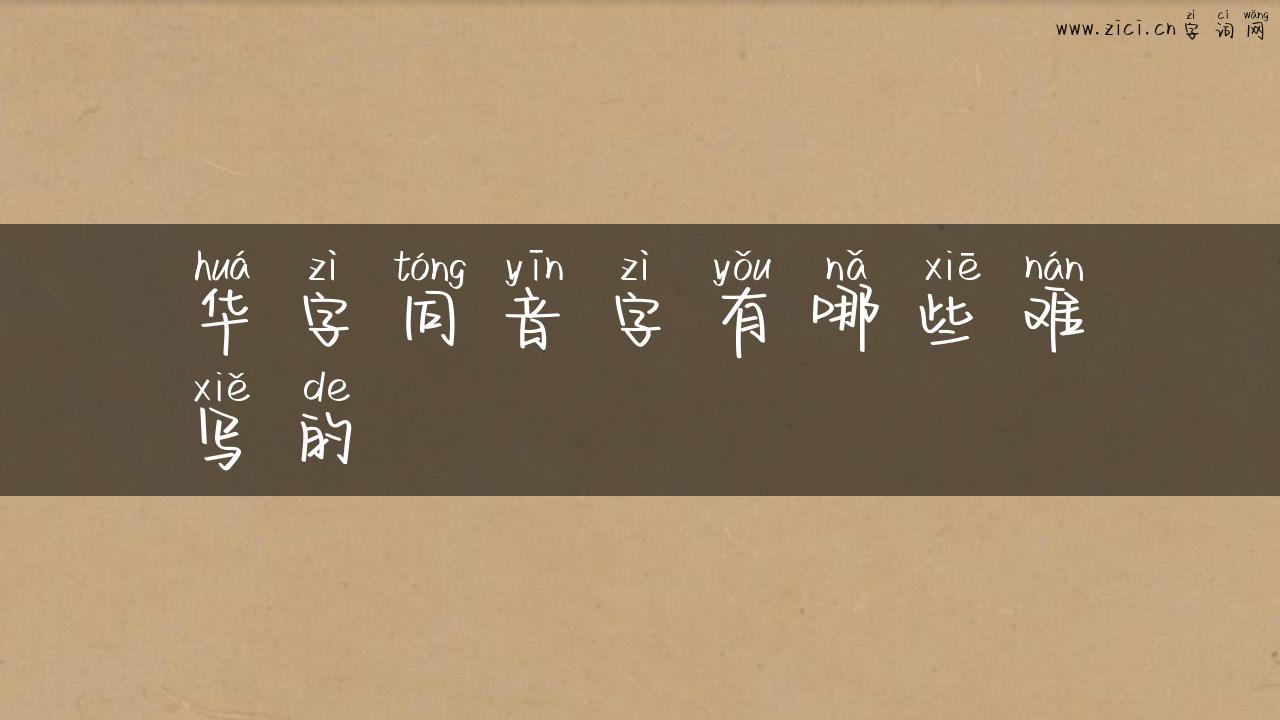 zì cí wǎng
www.zici.cn 字 词 网
huá zì tóng yīn zì yǒu nǎ xiē nán
华 字 同 音 字 有 哪 些 难
xiě de
写 的